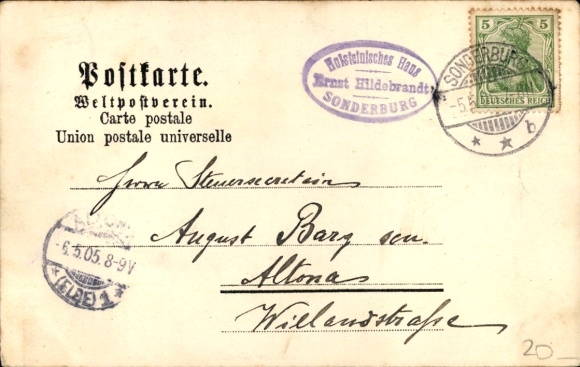 Postkarte.
Weltpostverein.
Carte postale
Union postale universelle
Holsteinisches Haus
Ernst Hildebrandt
SONDERBURG
5 5
DEUTSCHES REICH
SONDERBURG
-5.5
* * b
Herrn Steuersecretair
August Barg sen.
Altona
Wielandstraße
6.5.05. 8-9V
* (ELBE) 1 *
20